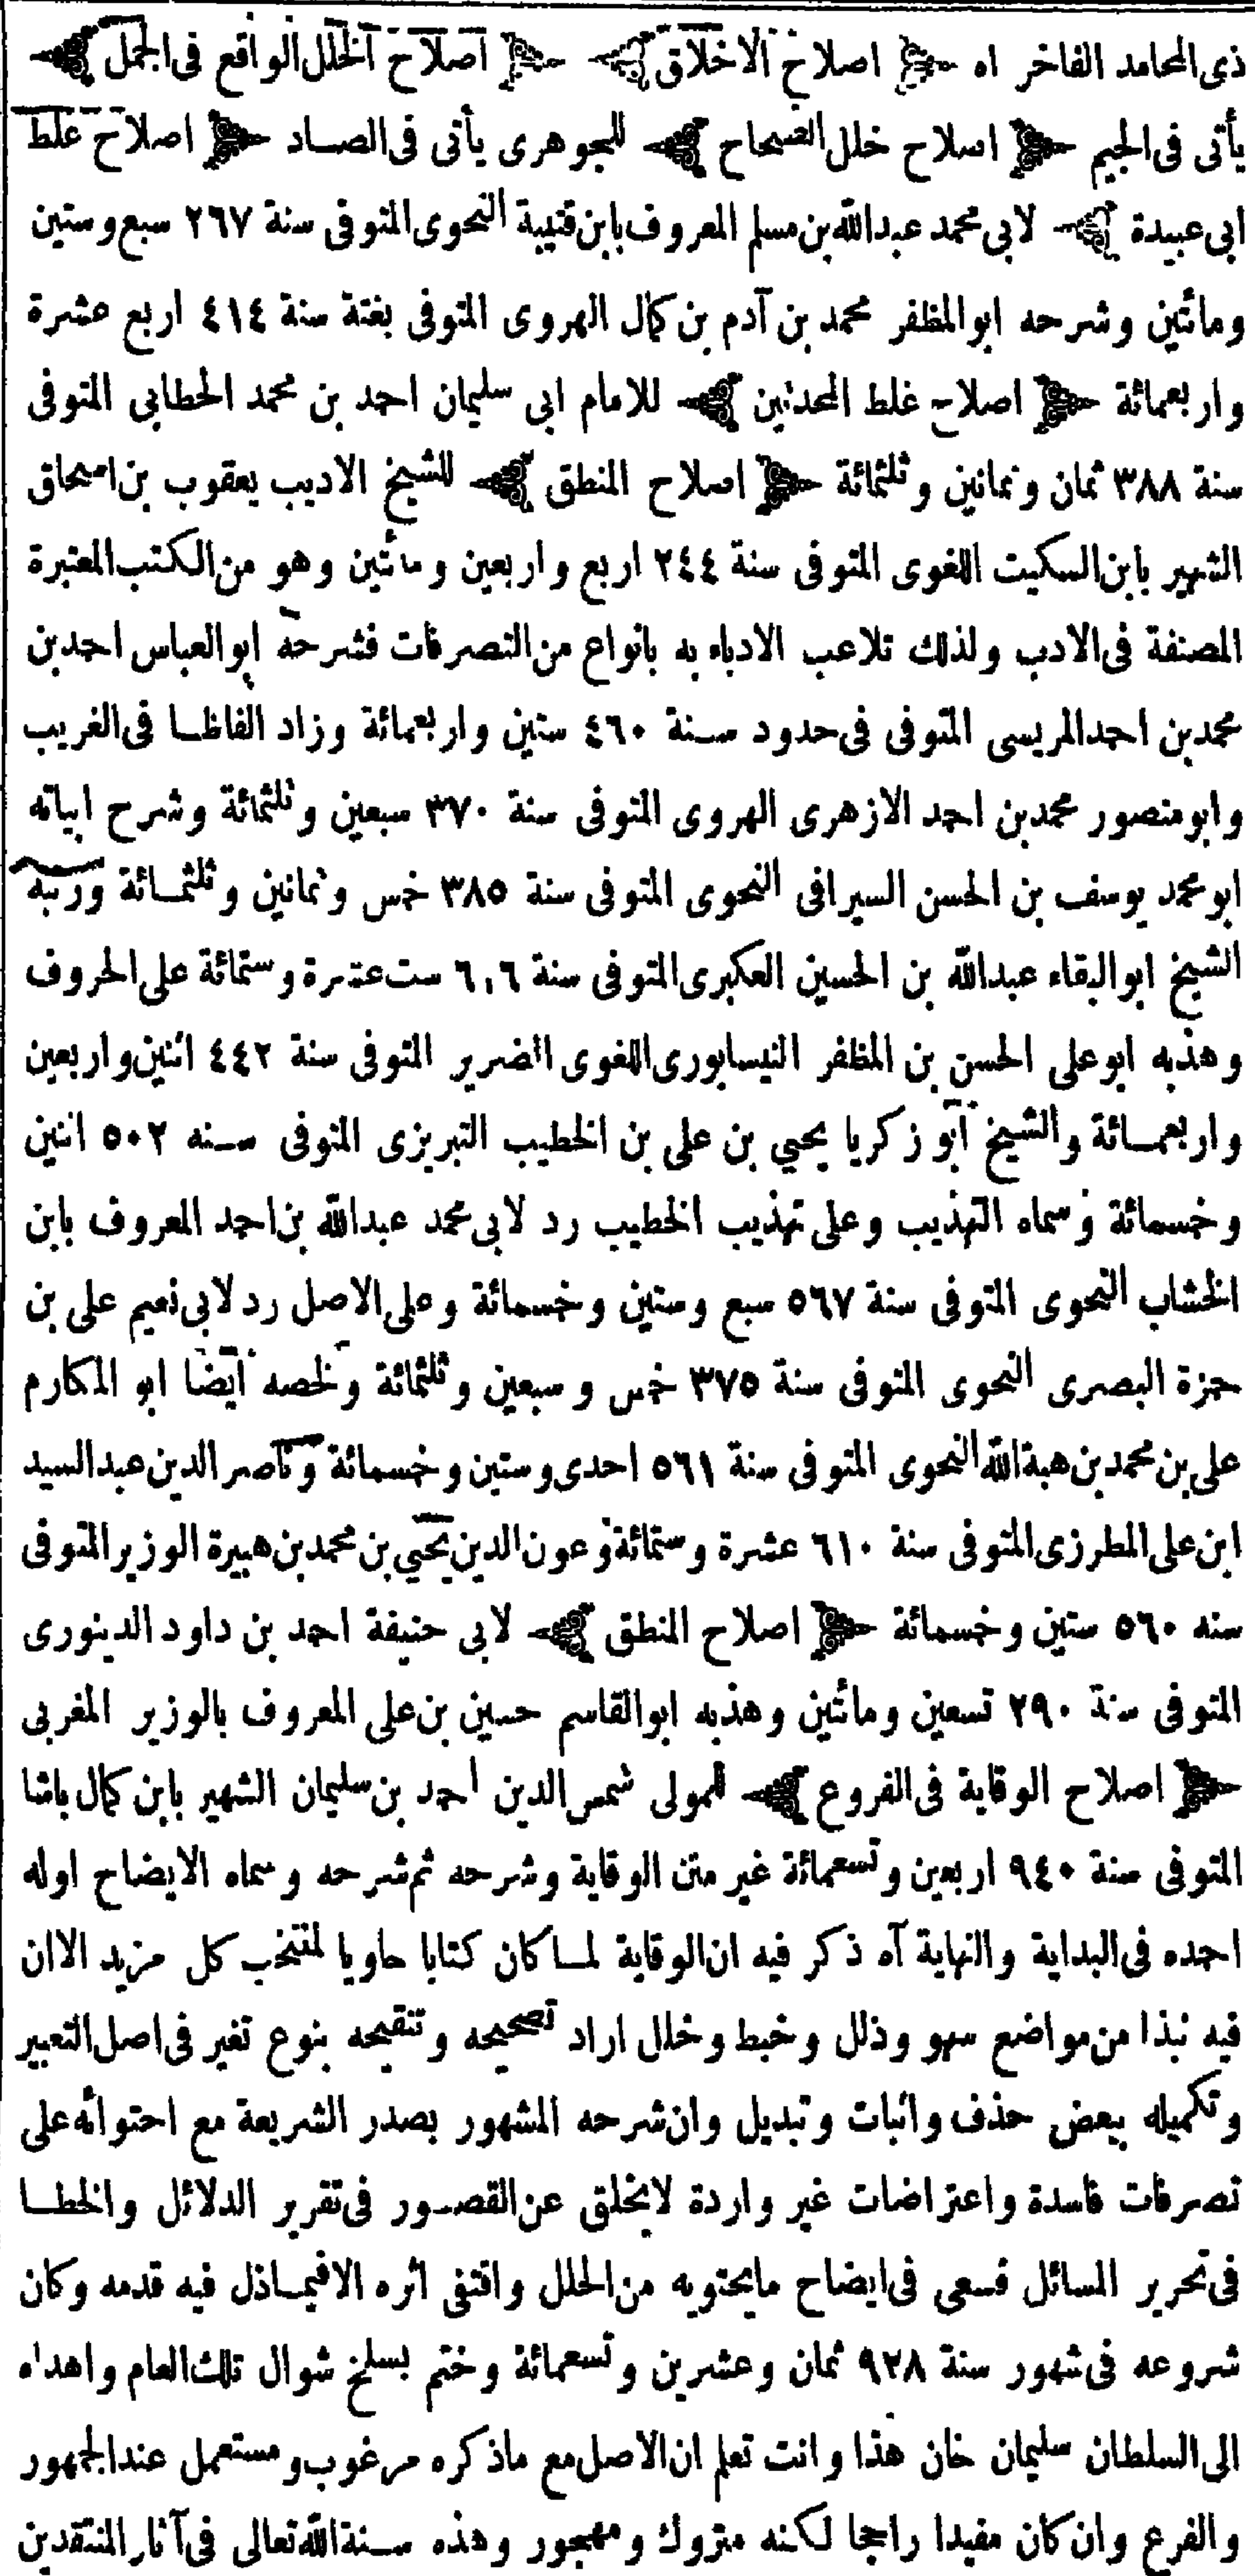 ذى المحامد الفاخر اه ﴿ اصلاح الاخلاق ﴾ ﴿ اصلاح الخلل الواقع فى الجمل ﴾
يأتى فى الجيم ﴿ اصلاح خلل الصحاح ﴾ للجوهرى يأتى فى الصاد ﴿ اصلاح غلط
ابى عبيدة ﴾ لابى محمد عبدالله بن مسلم المعروف بابن قتيبة النحوى المتوفى سنة ٢٦٧ سبع وستين
ومائتين وشرحه ابوالمظفر محمد بن آدم بن كمال الهروى المتوفى بغتة سنة ٤١٤ اربع عشرة
واربعمائة ﴿ اصلاح غلط المحدثين ﴾ للامام ابى سليمان احمد بن محمد الخطابى المتوفى
سنة ٣٨٨ ثمان وثمانين وثلثمائة ﴿ اصلاح المنطق ﴾ للشيخ الاديب يعقوب بن اسحاق
الشهير بابن السكيت اللغوى المتوفى سنة ٢٤٤ اربع واربعين ومائتين وهو من الكتب المعتبرة
المصنفة فى الادب ولذلك تلاعب الادباء به بانواع من التصرفات فشرحه ابوالعباس احمد بن
محمد بن احمد المريسى المتوفى فى حدود سنة ٤٦٠ ستين واربعمائة وزاد الفاظا فى الغريب
وابو منصور محمد بن احمد الازهرى الهروى المتوفى سنة ٣٧٠ سبعين وثلثمائة وشرح ابياته
ابو محمد يوسف بن الحسن السيرافى النحوى المتوفى سنة ٣٨٥ خمس وثمانين وثلثمائة ورتبه
الشيخ ابوالبقاء عبدالله بن الحسين العكبرى المتوفى سنة ٦١٦ ست عشرة وستمائة على الحروف
وهذبه ابوعلى الحسن بن المظفر النيسابورى اللغوى الضرير المتوفى سنة ٤٤٢ اثنين واربعين
واربعمائة والشيخ ابو زكريا يحيي بن على بن الخطيب التبريزى المتوفى سنه ٥٠٢ اثنين
وخمسمائة وسماه التهذيب وعلى تهذيب الخطيب رد لابى محمد عبدالله بن احمد المعروف بابن
الخشاب النحوى المتوفى سنة ٥٦٧ سبع وستين وخمسمائة وعلى الاصل رد لابى نعيم على بن
حمزة البصرى النحوى المتوفى سنة ٣٧٥ خمس وسبعين وثلثمائة ولخصه ايضا ابو المكارم
على بن محمد بن هبةالله النحوى المتوفى سنة ٥٦١ احدى وستين وخمسمائة وناصر الدين عبد السيد
ابن على المطرزى المتوفى سنة ٦١٠ عشرة وستمائة وعون الدين يحيي بن محمد بن هبيرة الوزير المتوفى
سنه ٥٦٠ ستين وخمسمائة ﴿ اصلاح المنطق ﴾ لابى حنيفة احمد بن داود الدينورى
المتوفى سنة ٢٩٠ تسعين ومائتين وهذبه ابوالقاسم حسين بن على المعروف بالوزير المغربى
﴿ اصلاح الوقاية فى الفروع ﴾ للمولى شمس الدين احمد بن سليمان الشهير بابن كمال باشا
المتوفى سنة ٩٤٠ اربعين وتسعمائة غير متن الوقاية وشرحه ثم شرحه وسماه الايضاح اوله
احمده فى البداية والنهاية آه ذكر فيه ان الوقاية لما كان كتابا حاويا لمنتخب كل مزيد الا ان
فيه نبذا من مواضع سهو وذلل وخبط وخلل اراد تصحيحه وتنقيحه بنوع تغير فى اصل التعبير
وتكميله ببعض حذف واثبات وتبديل وان شرحه المشهور بصدر الشريعة مع احتوائه على
تصرفات فاسدة واعتراضات غير واردة لايخلق عن القصور فى تقرير الدلائل والخطا
فى تحرير المسائل فسعى فى ايضاح مايحتويه من الخلل واقتفى اثره الا فيما ذل فيه قدمه وكان
شروعه فى شهور سنة ٩٢٨ ثمان وعشرين وتسعمائة وختم بسلخ شوال تلك العام واهداه
الى السلطان سليمان خان هذا وانت تعلم ان الاصل مع ماذكره مرغوب ومستعمل عند الجمهور
والفرع وان كان مفيدا راجحا لكنه متروك ومهجور وهذه سنة الله تعالى فى آثار المنتقدين